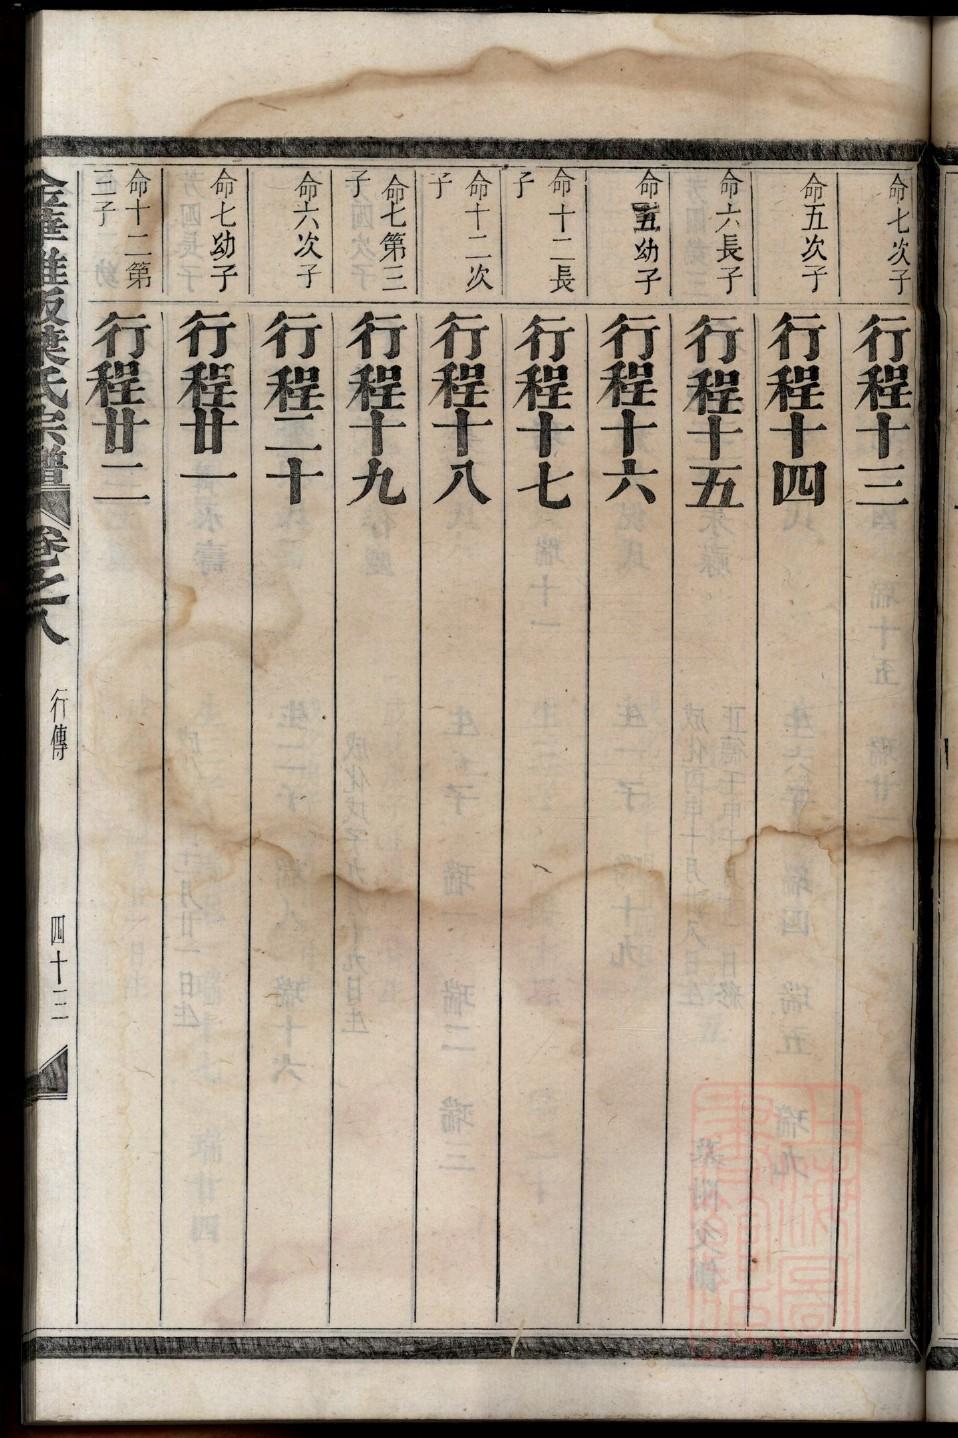 命七次子
行程十三
命五次子
行程十四
命六長子
行程十五
命五幼子
行程十六
命十二長子
行程十七
命十二次子
行程十八
命七第三子
行程十九
命六次子
行程二十
命七幼子
行程廿一
命十二第三子
行程廿二
金華雅畈葉氏宗譜
卷之八
行傳
四十三